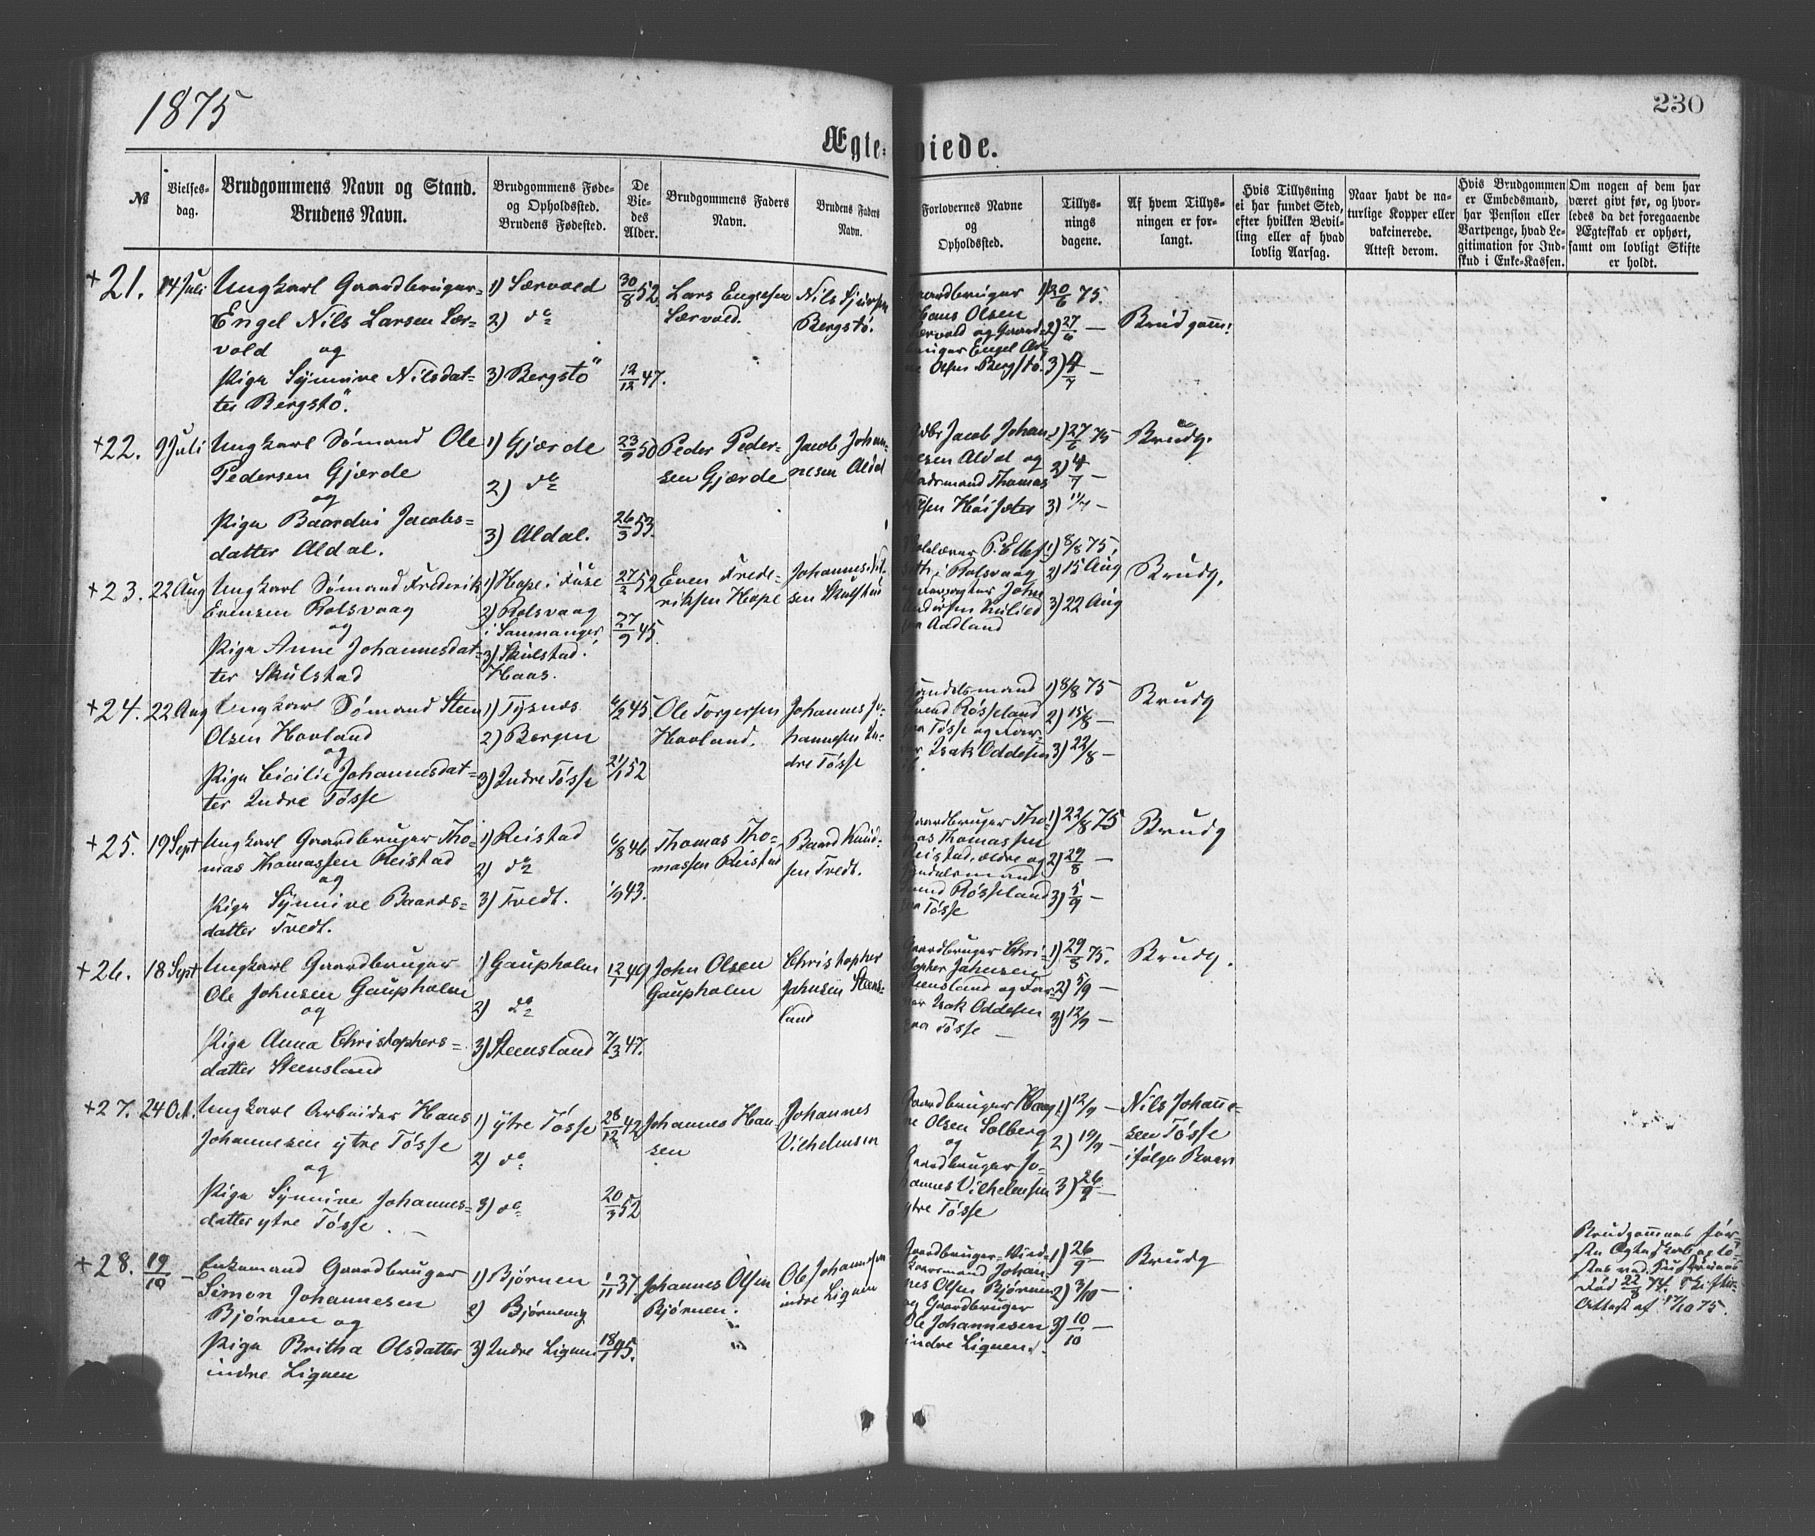 1875
230
Ægte-
viede.
№
Vielses-
dag.
Brudgommens Navn og Stand.
Brudens Navn.
Brudgommens Føde-
og Opholdssted.
Brudens Fødested.
De
Vie-
des
Alder.
Brudgommens Faders
Navn.
Brudens Faders
Navn.
Forlovernes Navne
og
Opholdssted.
Tillys-
nings
dagene.
Af hvem Tillys-
ningen er for-
langt.
Hvis Tillysning
ei har fundet Sted,
efter hvilken Bevil-
ling eller af hvad
lovlig Aarsag.
Naar havt de na-
turlige Kopper eller
vakcinerede.
Attest derom.
Hvis Brudgommen
er Embedsmand,
har Pension eller
Vartpenge, hvad Le-
gitimation for Ind-
skud i Enke-Kassen.
Om nogen af dem har
været givt før, og hvor-
ledes da det foregaaende
Ægteskab er ophørt,
samt om lovligt Skifte
er holdt.
+21. 14 Juli
Ungkarl Gaardbruger
Engel Nils Larsen Sær-
vold og
Pige Synnive Nilsdat-
ter Bergstö.
1) Særvold
2) do
3) Bergstö
30/8 52
12/12 47.
Lars Engelsen
Særvold.
Nils Sjursen
Bergstö.
Gaardbruger
Hans Olsen
Særvold og Gaard-
bruger Engel Ar-
ne Olsen Bergstö.
1) 20/6 75.
2) 27/6 —
3) 4/7 —
Brudgomm:
+22. 9 Juli
Ungkarl Sømand Ole
Pedersen Gjærde
og
Pige Baardni Jacobs-
datter Aldal.
1) Gjærde
2) do
3) Aldal.
23/9 50
26/3 53.
Peder Peder-
sen Gjærde
Jacob Johan-
nesen Aldal
Jacob Johan-
nesen Aldal og
Thomas
1) 27/6 75
2) 4/7
3) 11/7 —
Brudg.
+23. 22 Aug
Ungkarl Sømand Frederik
Evensen Rolsvaag
og
Pige Anne Johannesdat-
ter Skulstad
1) Hope i Fuse
2) Rolsvaag
i Sammanger
3) Skulstad
Haus.
27/2 52
27/9 45.
Even Frede-
riksen Hope
Johannes
sen Skulstad
i Rolsvaag
John
fra Aadland
1) 8/8 75
2) 15 Aug
3) 22 Aug
Brudg.
+24. 22 Aug
Ungkarl Sømand Steen
Olsen Hovland
og
Pige Cicilie Johannesdat-
ter Indre Tösse
1) Tysnes
2) Bergen
3) Indre Tösse
6/2 45
21/1 52
Ole Torgersen
Hovland.
Johannes Jo-
hannesen In-
dre Tösse
Handelsmand
Svend Rösseland
fra Tösse og
Isak Oddesen
1) 8/8 75
2) 15/8 —
3) 22/8 —
Brudg
+25. 19 Sept
Ungkarl Gaardbruger Tho-
mas Thomassen Reistad
og
Pige Synnive Baards-
datter Tvedt.
1) Reistad
2) do
3) Tvedt.
6/8 46
1/9 43.
Thomas Tho-
massen Reistad
Baard Knud-
sen Tvedt.
Gaardbruger Tho-
mas Thomassen
Reistad, ældre og
Handelsmand
Svend Rösseland
fra Tösse
1) 22/8 75
2) 29/8 —
3) 5/9 —
Brudg
+26. 18 Sept
Ungkarl Gaardbruger
Ole Johnsen Gaupholm
og
Pige Anna Christophers-
datter Steensland
1) Gaupholm
2) do
3) Steensland
12/1 49
7/3 47.
John Olsen
Gaupholm
Christopher
Johnsen Steens-
land
Gaardbruger Chri-
stopher Johnsen
Steensland og
Isak Oddesen
fra Tösse —
1) 29/8 75.
2) 5/9 —
3) 12/9 —
Brudg.
+27. 24 Oct.
Ungkarl Arbeider Hans
Johannesen ytre Tösse
og
Pige Synnive Johannes-
datter ytre Tösse —
1) ytre Tösse
2) do
3) do
28/12 42
20/3 52
Johannes Han
sen
Johannes
Vilhelmsen
Gaardbruger
Olsen Solberg
og
Gaardbruger Jo-
hannes Vilhelmsen
ytre Tösse
1) 12/9 —
2) 19/9 —
3) 26/9 —
Nils Johanne-
sen Tösse
ifølge Brev
+28. 19/10 —
Enkemand Gaardbruger
Simon Johannesen
Bjørnen og
Pige Britha Olsdatter
indre Lignen
1) Bjørnen
2) Bjørnen
3) Indre Lignen
1/11 37
18/1 45.
Johannes Olsen
Bjørnen.
Ole Johannesen
indre Lignen
Gaardbruger
Johan-
nes Olsen Bjørnen
og Gaardbruger
Ole Johannesen
indre Lignen.
1) 26/9 —
2) 3/10 —
3) 10/10 —
Brudg
Brudgommens før-
ste Ægteskab oplø-
stes ved Hustruens
Død 22/8 74. Skifte-
Attest af 17/10 75.